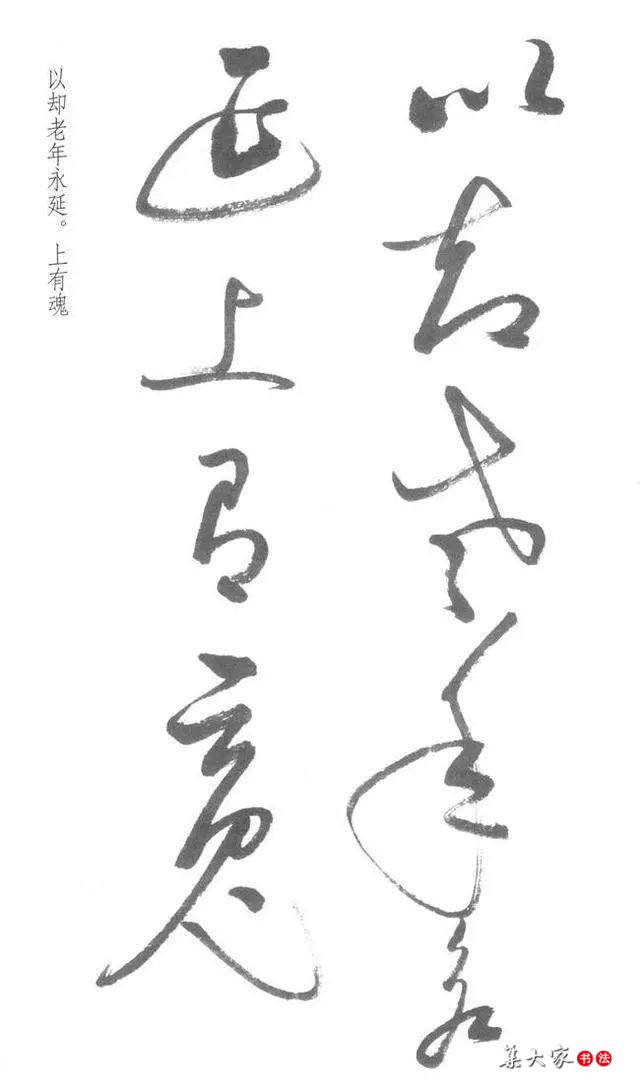 以却老年永
延上有魂
以却老年永延。上有魂
集大家书法